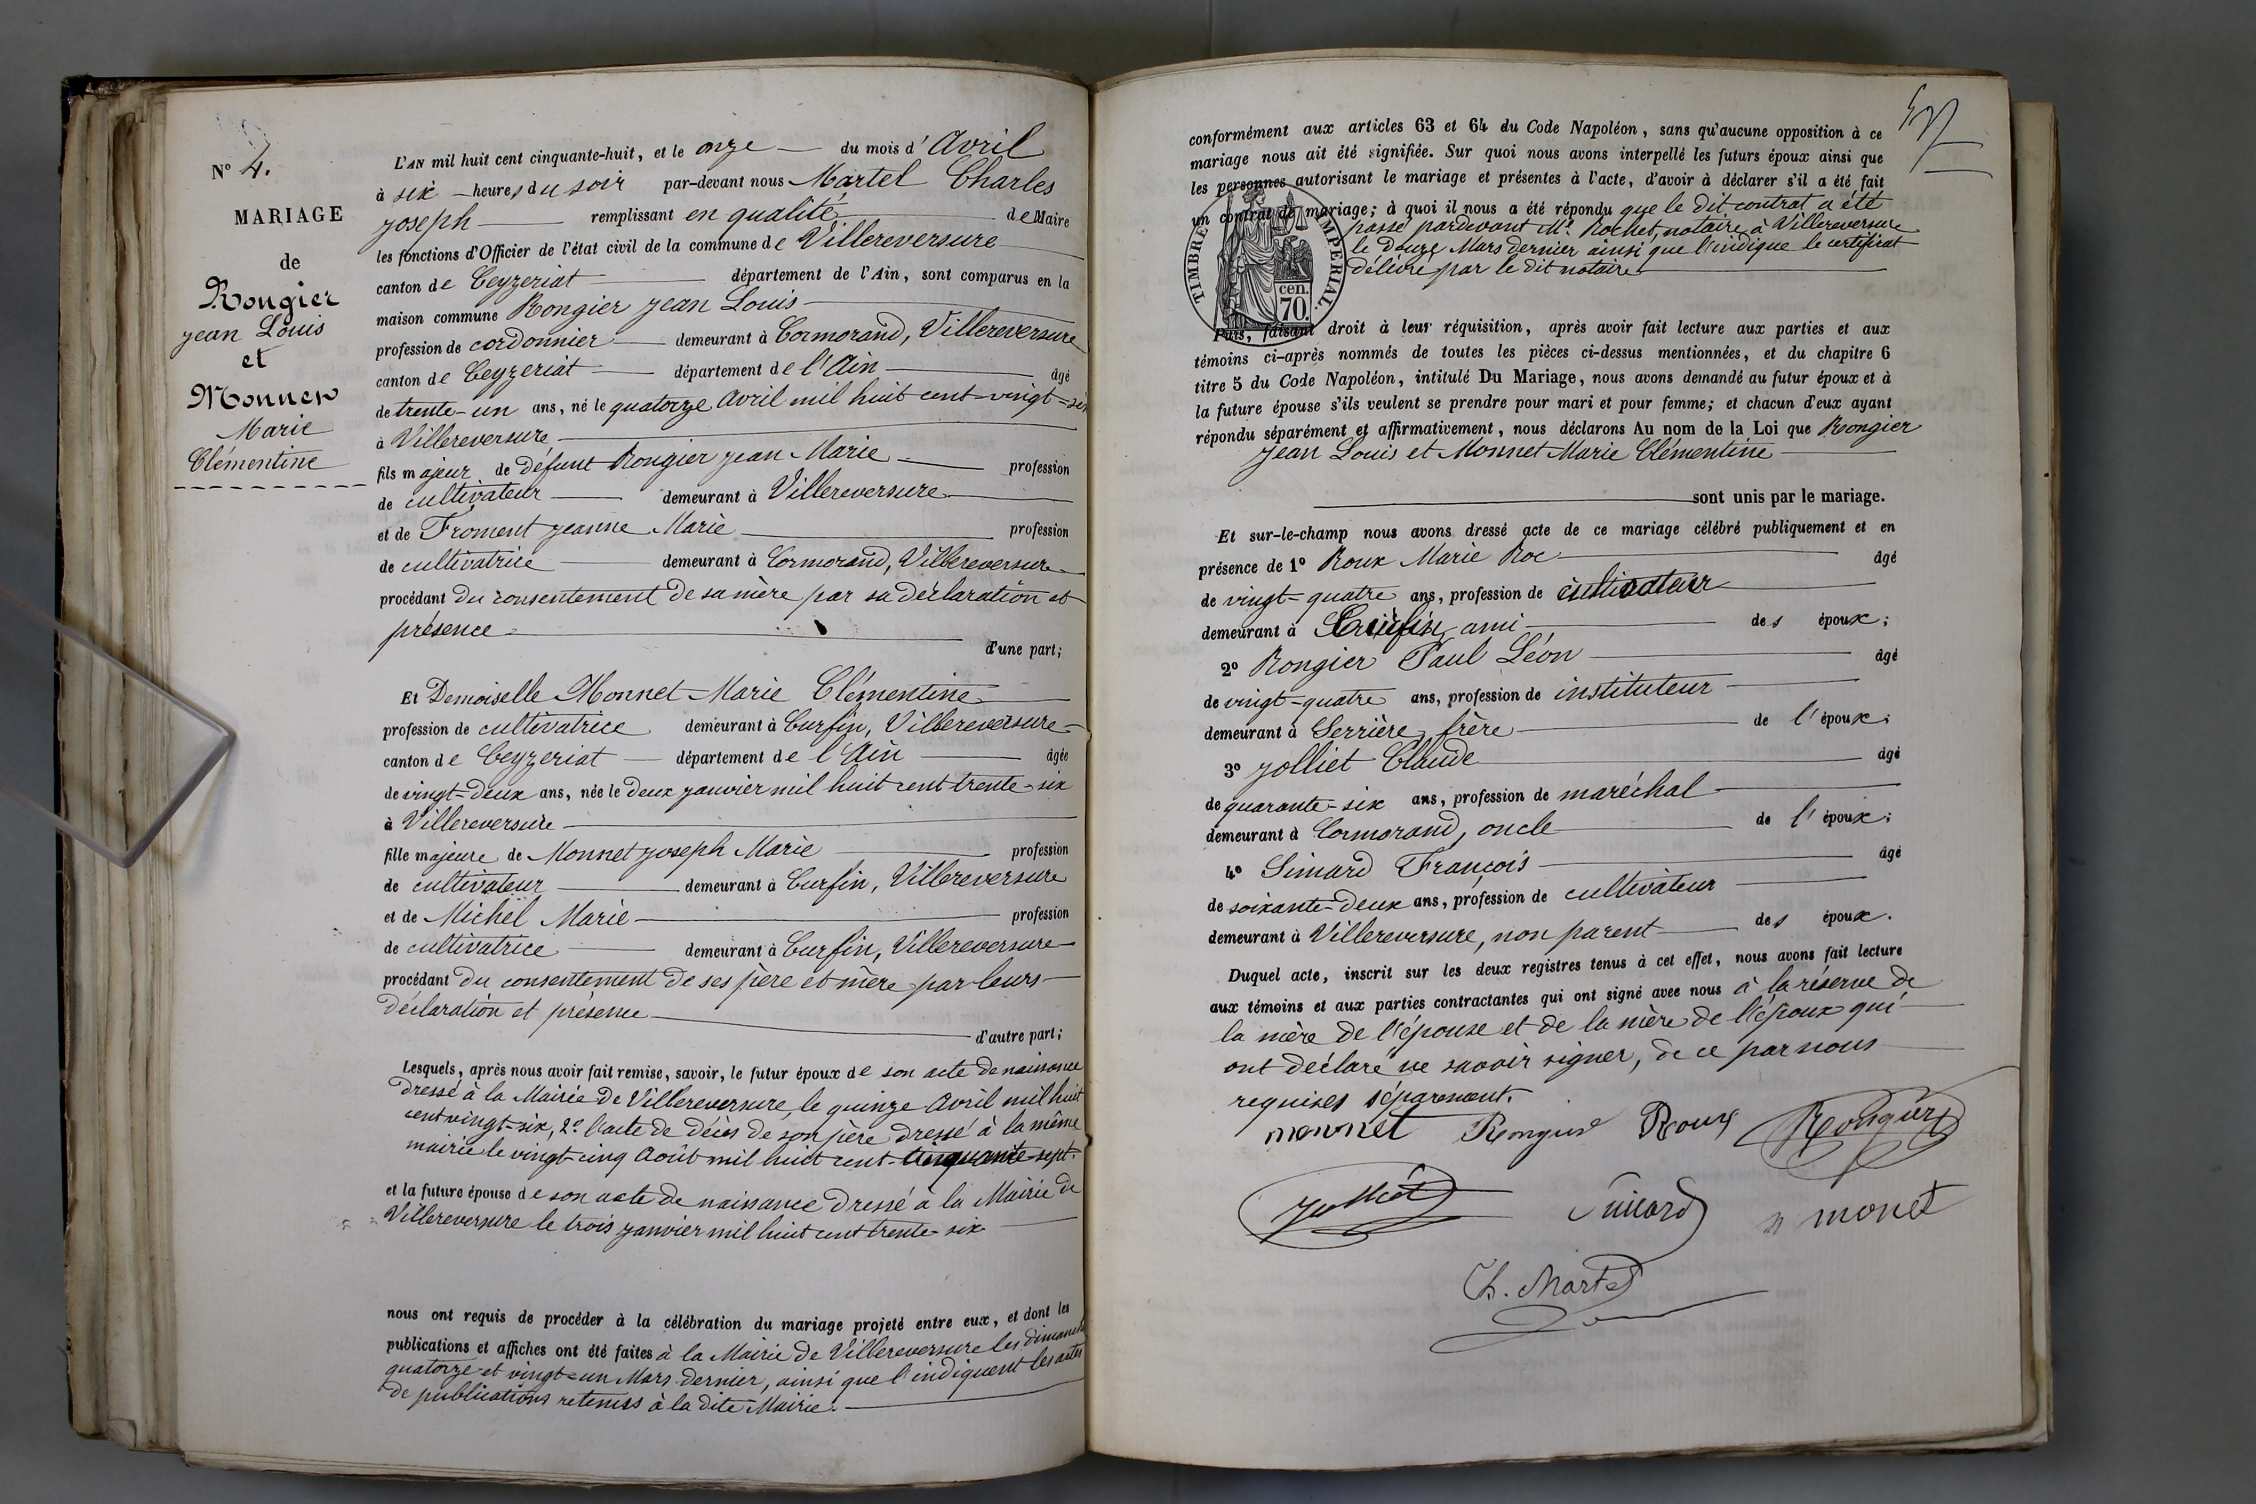 N° 4.
MARIAGE
de
Rongier
Jean Louis
et
Monnet
Marie
Clémentine
L'AN mil huit cent cinquante-huit, et le onze du mois d'Avril
à six heures du soir par-devant nous Martel Charles
Joseph remplissant en qualité de Maire
les fonctions d'Officier de l'état civil de la commune de Villereversure
canton de Ceyzeriat département de l'Ain, sont comparus en la
maison commune Rongier Jean Louis
profession de cordonnier demeurant à Cormorand, Villereversure
canton de Ceyzeriat département de l'Ain âgé
de trente-un ans, né le quatorze Avril mil huit cent-vingt-six
à Villereversure
fils majeur de défunt Rongier Jean Marie profession
de cultivateur demeurant à Villereversure
et de Froment Jeanne Marie profession
de cultivatrice demeurant à Cormorand, Villereversure
procédant du consentement de sa mère par sa déclaration et
présence
d'une part;
Et Demoiselle Monnet Marie Clémentine
profession de cultivatrice demeurant à Curfin, Villereversure
canton de Ceyzeriat département de l'Ain âgée
de vingt-deux ans, née le deux janvier mil huit cent trente-six
à Villereversure
fille majeure de Monnet Joseph Marie profession
de cultivateur demeurant à Curfin, Villereversure
et de Michel Marie profession
de cultivatrice demeurant à Curfin, Villereversure
procédant du consentement de ses père et mère par leurs
déclaration et présence
d'autre part;
Lesquels, après nous avoir fait remise, savoir, le futur époux de son acte de naissance
dressé à la Mairie de Villereversure, le quinze Avril mil huit
cent vingt-six, 2° l'acte de décès de son père dressé à la même
mairie le vingt-cinq Août mil huit cent-cinquante-sept.
et la future épouse de son acte de naissance dressé à la Mairie de
Villereversure le trois janvier mil huit cent trente-six
nous ont requis de procéder à la célébration du mariage projeté entre eux, et dont les
publications et affiches ont été faites à la Mairie de Villereversure les dimanches
quatorze et vingt-un Mars dernier, ainsi que l'indiquent les actes
de publications retenus à la dite Mairie.
57
conformément aux articles 63 et 64 du Code Napoléon, sans qu'aucune opposition à ce
mariage nous ait été signifiée. Sur quoi nous avons interpellé les futurs époux ainsi que
les personnes autorisant le mariage et présentes à l'acte, d'avoir à déclarer s'il a été fait
un contrat de mariage; à quoi il nous a été répondu que le dit contrat a été
passé pardevant Mr. Rochet, notaire à Villereversure
le Douze Mars dernier ainsi que l'indique le certificat
délivré par le dit notaire
TIMBRE IMPERIAL.
cen.
70.
Puis, faisant droit à leur réquisition, après avoir fait lecture aux parties et aux
témoins ci-après nommés de toutes les pièces ci-dessus mentionnées, et du chapitre 6
titre 5 du Code Napoléon, intitulé Du Mariage, nous avons demandé au futur époux et à
la future épouse s'ils veulent se prendre pour mari et pour femme; et chacun d'eux ayant
répondu séparément et affirmativement, nous déclarons Au nom de la Loi que Rongier
Jean Louis et Monnet Marie Clémentine
sont unis par le mariage.
Et sur-le-champ nous avons dressé acte de ce mariage célébré publiquement et en
présence de 1° Roux Marie Roc âgé
de vingt-quatre ans, profession de cultivateur
demeurant à Curfin, ami des époux;
2° Rongier Paul Léon âgé
de vingt-quatre ans, profession de instituteur
demeurant à Serrière, frère de l'époux;
3° Jolliet Claude âgé
de quarante-six ans, profession de maréchal
demeurant à Cormorand, oncle de l'époux;
4° Simard François âgé
de soixante-deux ans, profession de cultivateur
demeurant à Villereversure, non parent des époux.
Duquel acte, inscrit sur les deux registres tenus à cet effet, nous avons fait lecture
aux témoins et aux parties contractantes qui ont signé avec nous à la réserve de
la mère de l'épouse et de la mère de l'époux qui
ont déclaré ne savoir signer, de ce par nous
requises séparément.
monnet Rongier Roux Rongier
Jolliet Simard monet
Ch. Martel